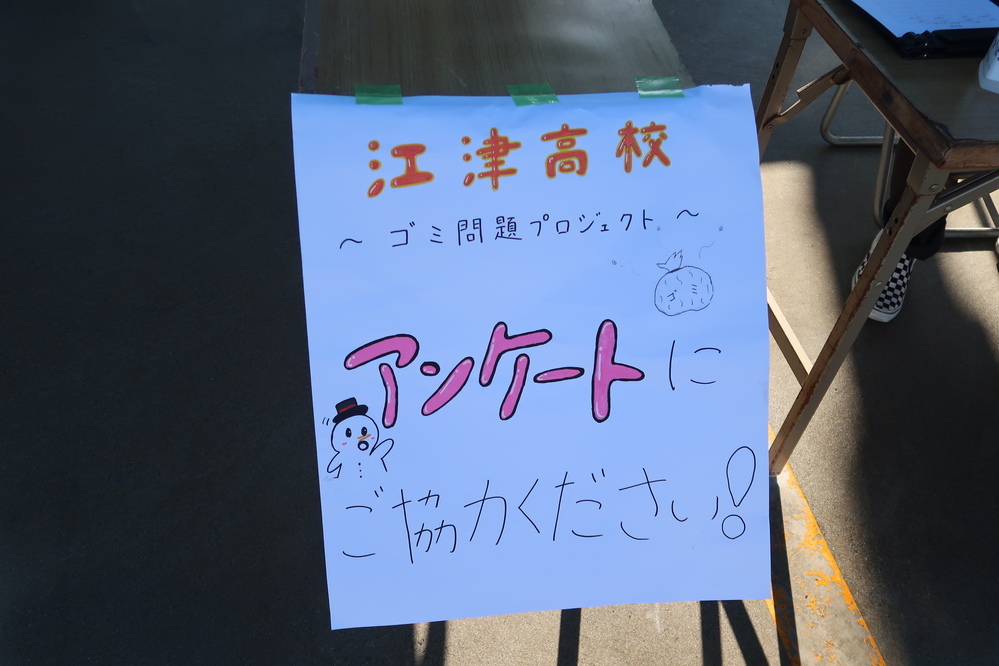 江津高校
～ ゴミ問題プロジェクト ～
アンケートに
ご協力ください!